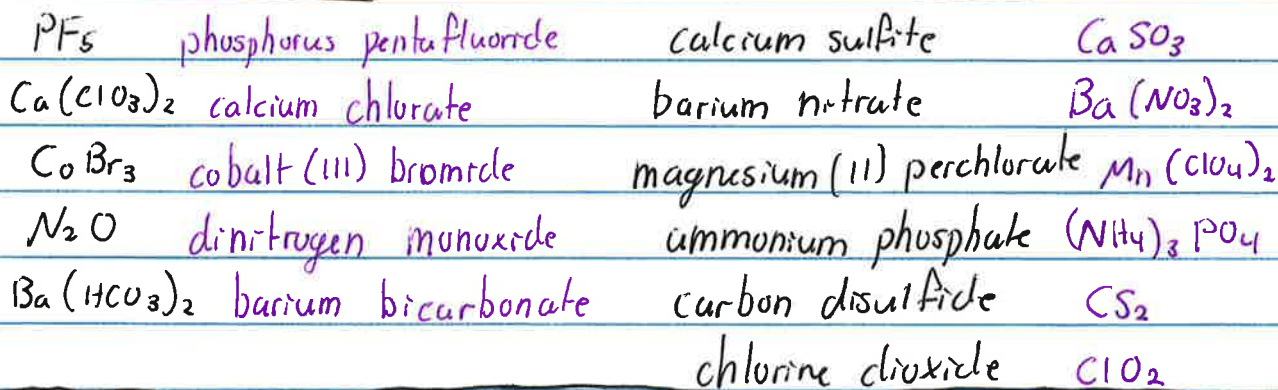 PF5 phosphorus pentafluoride calcium sulfite CaSO3
Ca(ClO3)2 calcium chlorate barium nitrate Ba(NO3)2
CoBr3 cobalt (III) bromide magnesium (II) perchlorate Mn(ClO4)2
N2O dinitrogen monoxide ammonium phosphate (NH4)3PO4
Ba(HCO3)2 barium bicarbonate carbon disulfide CS2
chlorine dioxide ClO2